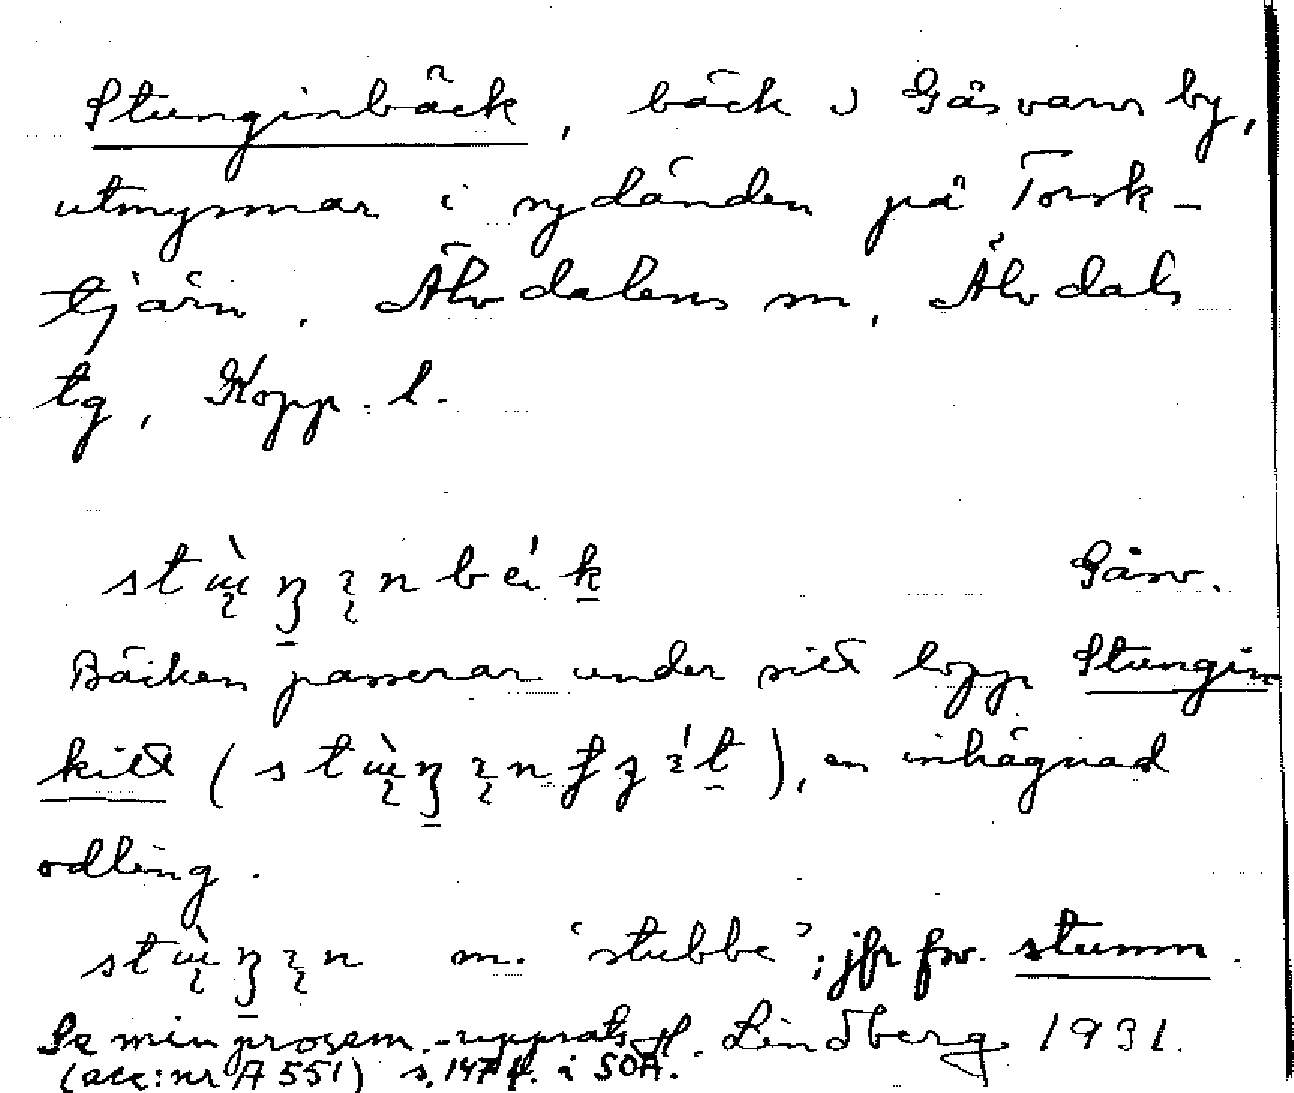 Stunginbäck, bäck i Gåsvarvs by,
utmynnar i sydänden på Torsk-
tjärn. Älvdalens sn, Älvdals
tg, Kopp. l.
Gåsv.
Bäcken passerar under sitt lopp Stungin
kitt ( ), en inhägnad
odling.
m. 'stubbe'; jfr fvn. stumn.
Se min prosem.-uppsats H. Lindberg 1931.
(acc:nr A 551) s. 147 f. i SOA.